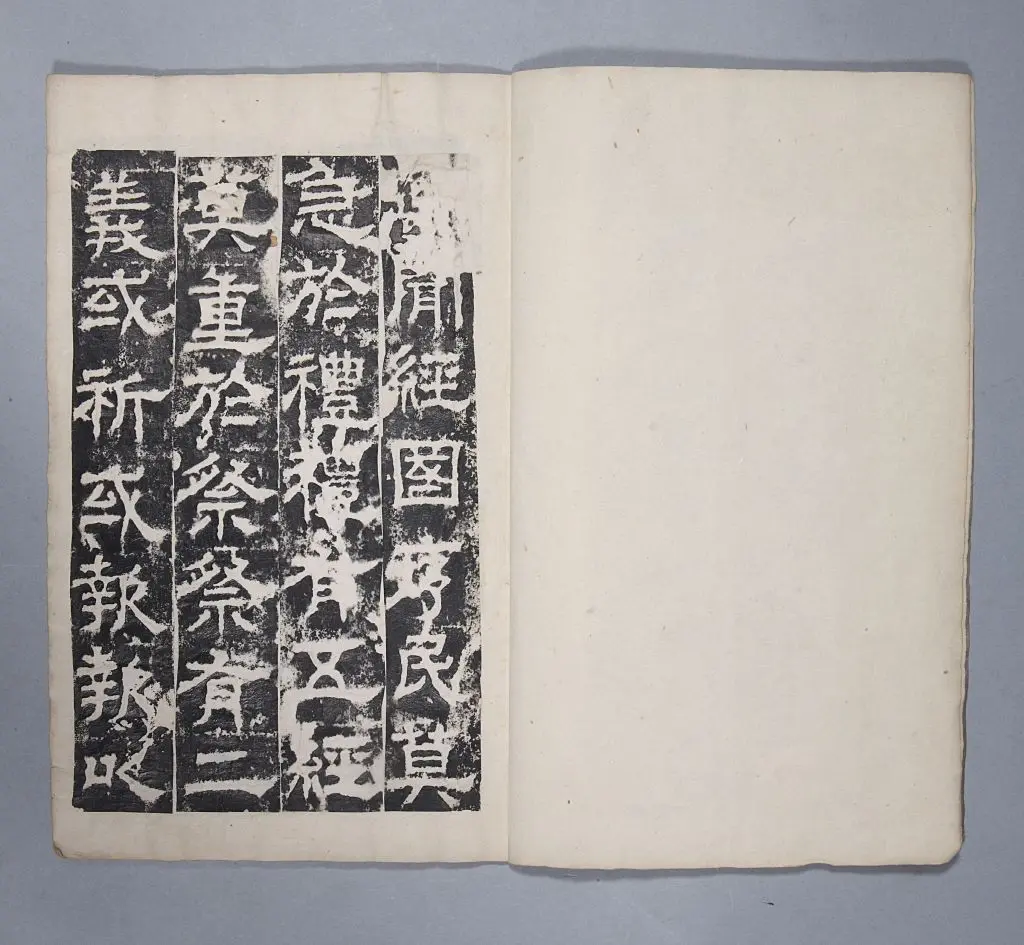 聞經國序民莫
急於禮禮有五經
莫重於祭祭有二
義或祈或報報以